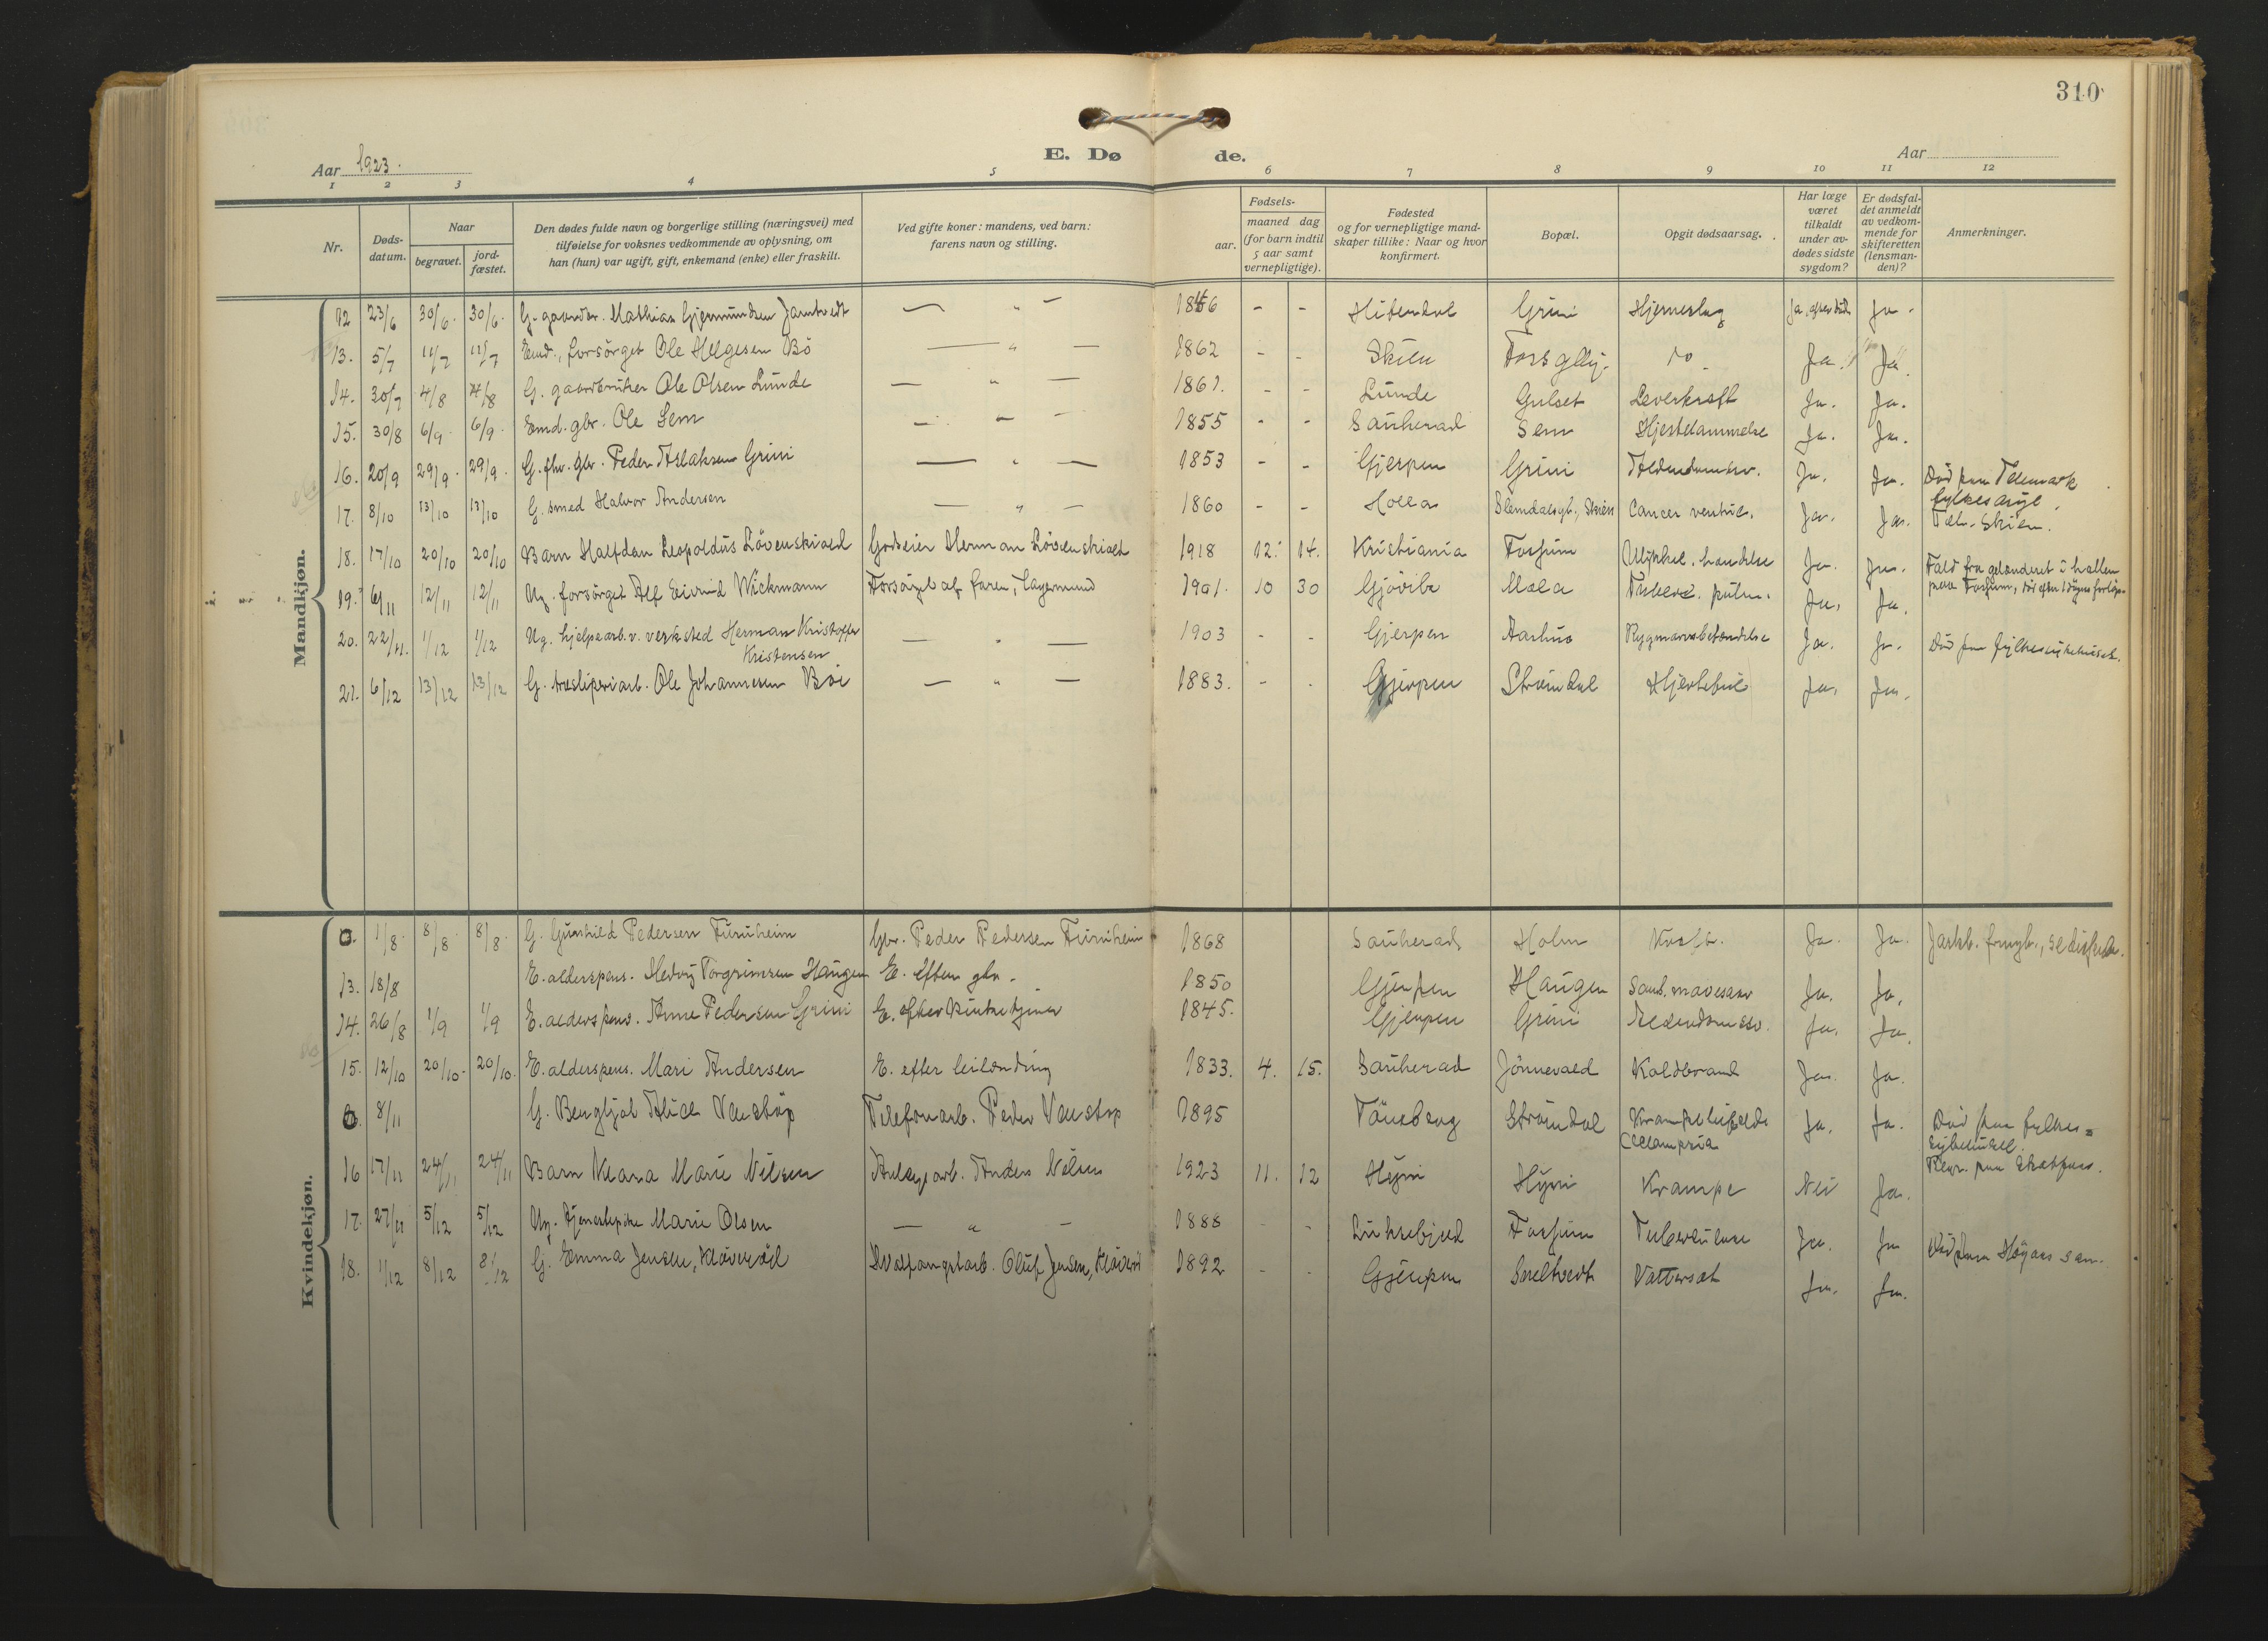 310
Aar 1923. E. Dø de. Aar
1 2 3 4 5 6 7 8 9 10 11 12
Nr. Døds-datum. Naar begravet. jord-fæstet. Den dødes fulde navn og borgerlige stilling (næringsvei) med tilføielse for voksnes vedkommende av oplysning, om han (hun) var ugift, gift, enkemand (enke) eller fraskilt. Ved gifte koner: mandens, ved barn: farens navn og stilling. aar. Fødsels- maaned dag (for barn indtil 5 aar samt vernepligtige). Fødested og for vernepligtige mandskaper tillike: Naar og hvor konfirmert. Bopæl. Opgit dødsaarsag. Har læge været tilkaldt under avdødes sidste sygdom? Er dødsfaldet anmeldt av vedkommende for skifteretten (lensmanden)? Anmerkninger.
Mandkjøn.
12 23/6 30/6. 30/6. Mathias Gjermundsen Jamtvedt — „ — 1846 - - Hitterdal Grini Hjerneslag Ja, efter död Ja.
13. 5/7 11/7 11/7 Emd., forsörget Ole Helgesen Bö — „ — 1862 - - Skien Fossgllj. do. Ja. Ja.
14. 30/7 4/8 4/8 G. gaardbruker Ole Olsen Lunde — „ — 1861. - - Lunde Gulset Leverkræft Ja. Ja.
15. 30/8 6/9 6/9 Emd. gbr. Ole Sem — „ — 1855 - - Sauherad Sem Hjertelammelse Ja. Ja.
16. 20/9 29/9. 29/9. G. fhv. gbr. Peder Aslaksen Grini — „ — 1853 - - Gjerpen Grini Alderdomssv. Ja. Ja. Död paa Telemark fylkes asyl,
17. 8/10 13/10 13/10 G. smed Halvor Andersen — „ — 1860 - - Holla Slemdalsgt., Skien Cancer ventric. Ja. Ja. Skien.
18. 17/10 20/10 20/10 Barn Halfdan Leopoldus Lövenskiold Godseier Herman Lövenskiold 1918 12. 14. Kristiania Fossum Ulykkel. hændelse Ja. Ja. Fald fra gelænderet i hallen paa Fossum, död efter 1 dögns forlöp.
19. 6/11 12/11 12/11 Ug. forsörget Alf Eivind Wickmann Forsörget af faren, 1901. 10 30 Gjövik Mæla Tuberc. pulm. Ja. Ja.
20. 22/11. 1/12 1/12 Ug. hjelpearb. v. verksted Herman Kristoffer Kristensen — „ — 1903 - - Gjerpen Aarhus Rygmarvsbetændelse Ja. Ja. Död paa fylkessykehuset.
21. 6/12 13/12 13/12 G. træsliperiarb. Ole Johannesen Böe — „ — 1883. - - Gjerpen Strömdal Hjertefeil Ja. Ja.
Kvindekjøn.
1/8. 8/8. 8/8. G. Gunhild Pedersen Furuheim Gbr. Peder Pedersen Furuheim 1868 Sauherad Holm Kræft. Ja. Ja.
13. 18/8 E. alderspens. Hedvig Torgrimsen Haugen E. efter gbr. 1850 Gjerpen Haugen mavesaar Ja. Ja.
14. 26/8 1/9 1/9 E. alderspens. Anne Pedersen Grini E. efter 1845. Gjerpen Grini Alderdomssv. Ja. Ja.
15. 12/10 20/10. 20/10. E. alderspens. Mari Andersen E. efter leilænding 1833. 4. 15. Sauherad Jönnevald Koldbrand Ja. Ja.
8/11 G. Bergljot Alice Venstöp Telefonarb. Peder Venstöp 1895 Tönsberg Strömdal Eclampsia Ja. Ja. Död paa fylkes-
16 17/11 24/11 24/11 Barn Klara Marie Nilsen Anlægsarb. Anders Nilsen 1923 11. 12 Hyni Hyni Krampe Nei Ja.
17. 27/11 5/12 5/12 Ug. tjenestepike Marie Olsen — „ — 1888 - - Luksefjeld Fossum Tuberkulose Ja. Ja Död paa Höyaas san.
18. 1/12 8/12 8/12 G. Emma Jensen, Klöveröd Hvalfangstarb. Oluf Jensen, Klöveröd 1892 - - Gjerpen Sneltvedt Vattersot Ja. Ja.